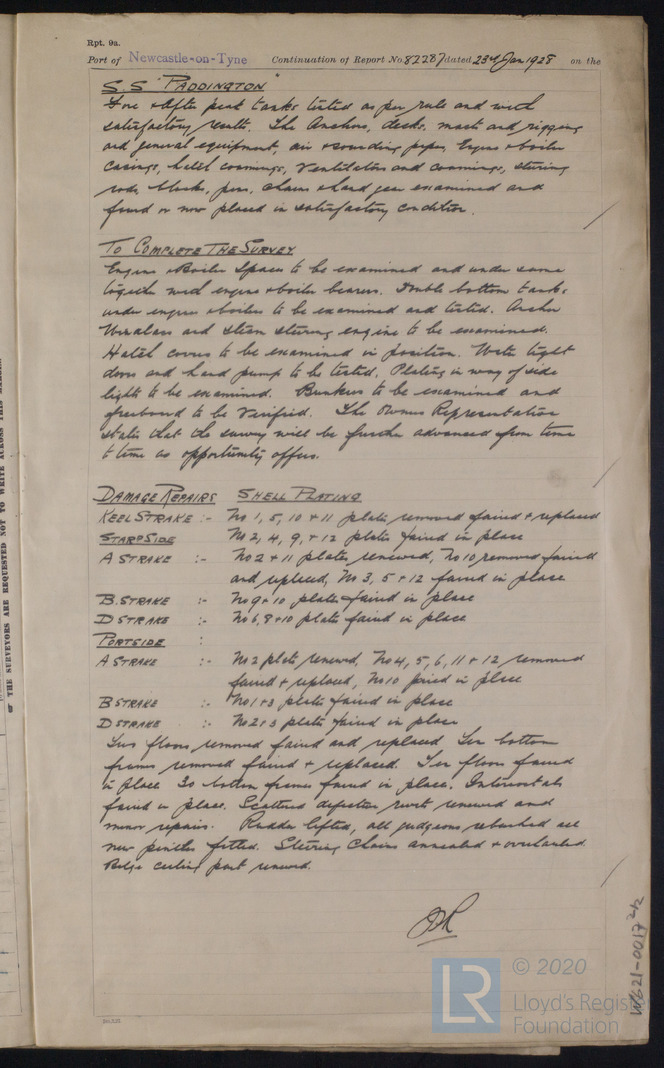 Rpt. 9a.
Port of Newcastle-on-Tyne Continuation of Report No. 82287 dated 23rd Jan 1928 on the
S.S "PADDINGTON"
Fore & After peak tanks tested as per rule and with
satisfactory results. The Anchors, decks, mast and rigging
and general equipment, air & sounding pipes, Engine & boiler
casings, hatch coamings, Ventilators and coamings, steering
rods, blocks, pins, chains & hand gear examined and
found or now placed in satisfactory condition.
TO COMPLETE THE SURVEY
Engine & Boiler Spaces to be examined and under same
together with engine & boiler bearers. Double bottom tanks
under engines & boilers to be examined and tested. Anchor
Windlass and steam steering engine to be examined.
Hatch covers to be examined in position. Water tight
doors and hand pump to be tested. Plating in way of side
lights to be examined. Bunkers to be examined and
freeboard to be verified. The Owners Representative
states that the survey will be further advanced from time
to time as opportunity offers.
DAMAGE REPAIRS SHELL PLATING
KEEL STRAKE :- No 1, 5, 10 & 11 plates removed faired & replaced
STARBSIDE No 2, 4, 9, & 12 plates faired in place
A STRAKE :- No 2 & 11 plates renewed, No 10 removed faired
and replaced, No 3, 5 & 12 faired in place
B. STRAKE :- No 9 & 10 plates faired in place
D STRAKE :- No 6, 8 & 10 plates faired in place
PORTSIDE :
A STRAKE :- No 2 plate renewed, No 4, 5, 6, 11 & 12 removed
faired & replaced, No 10 faired in place
B STRAKE :- No 1 & 3 plates faired in place
D STRAKE :- No 2 & 3 plates faired in place
floors removed faired and replaced bottom
frames removed faired & replaced. Ten floors faired
in place 30 bottom frames faired in place. Intercostals
faired in place. Scattered defective rivets renewed and
minor repairs. Rudder lifted, all gudgeons rebushed all
new pintles fitted. Steering Chains annealed & overhauled.
Bilge ceiling part renewed.
© 2020
Lloyd's Register
Foundation
LR
W621-0017 2/2
THE SURVEYORS ARE REQUESTED NOT TO WRITE ACROSS THIS MARGIN.